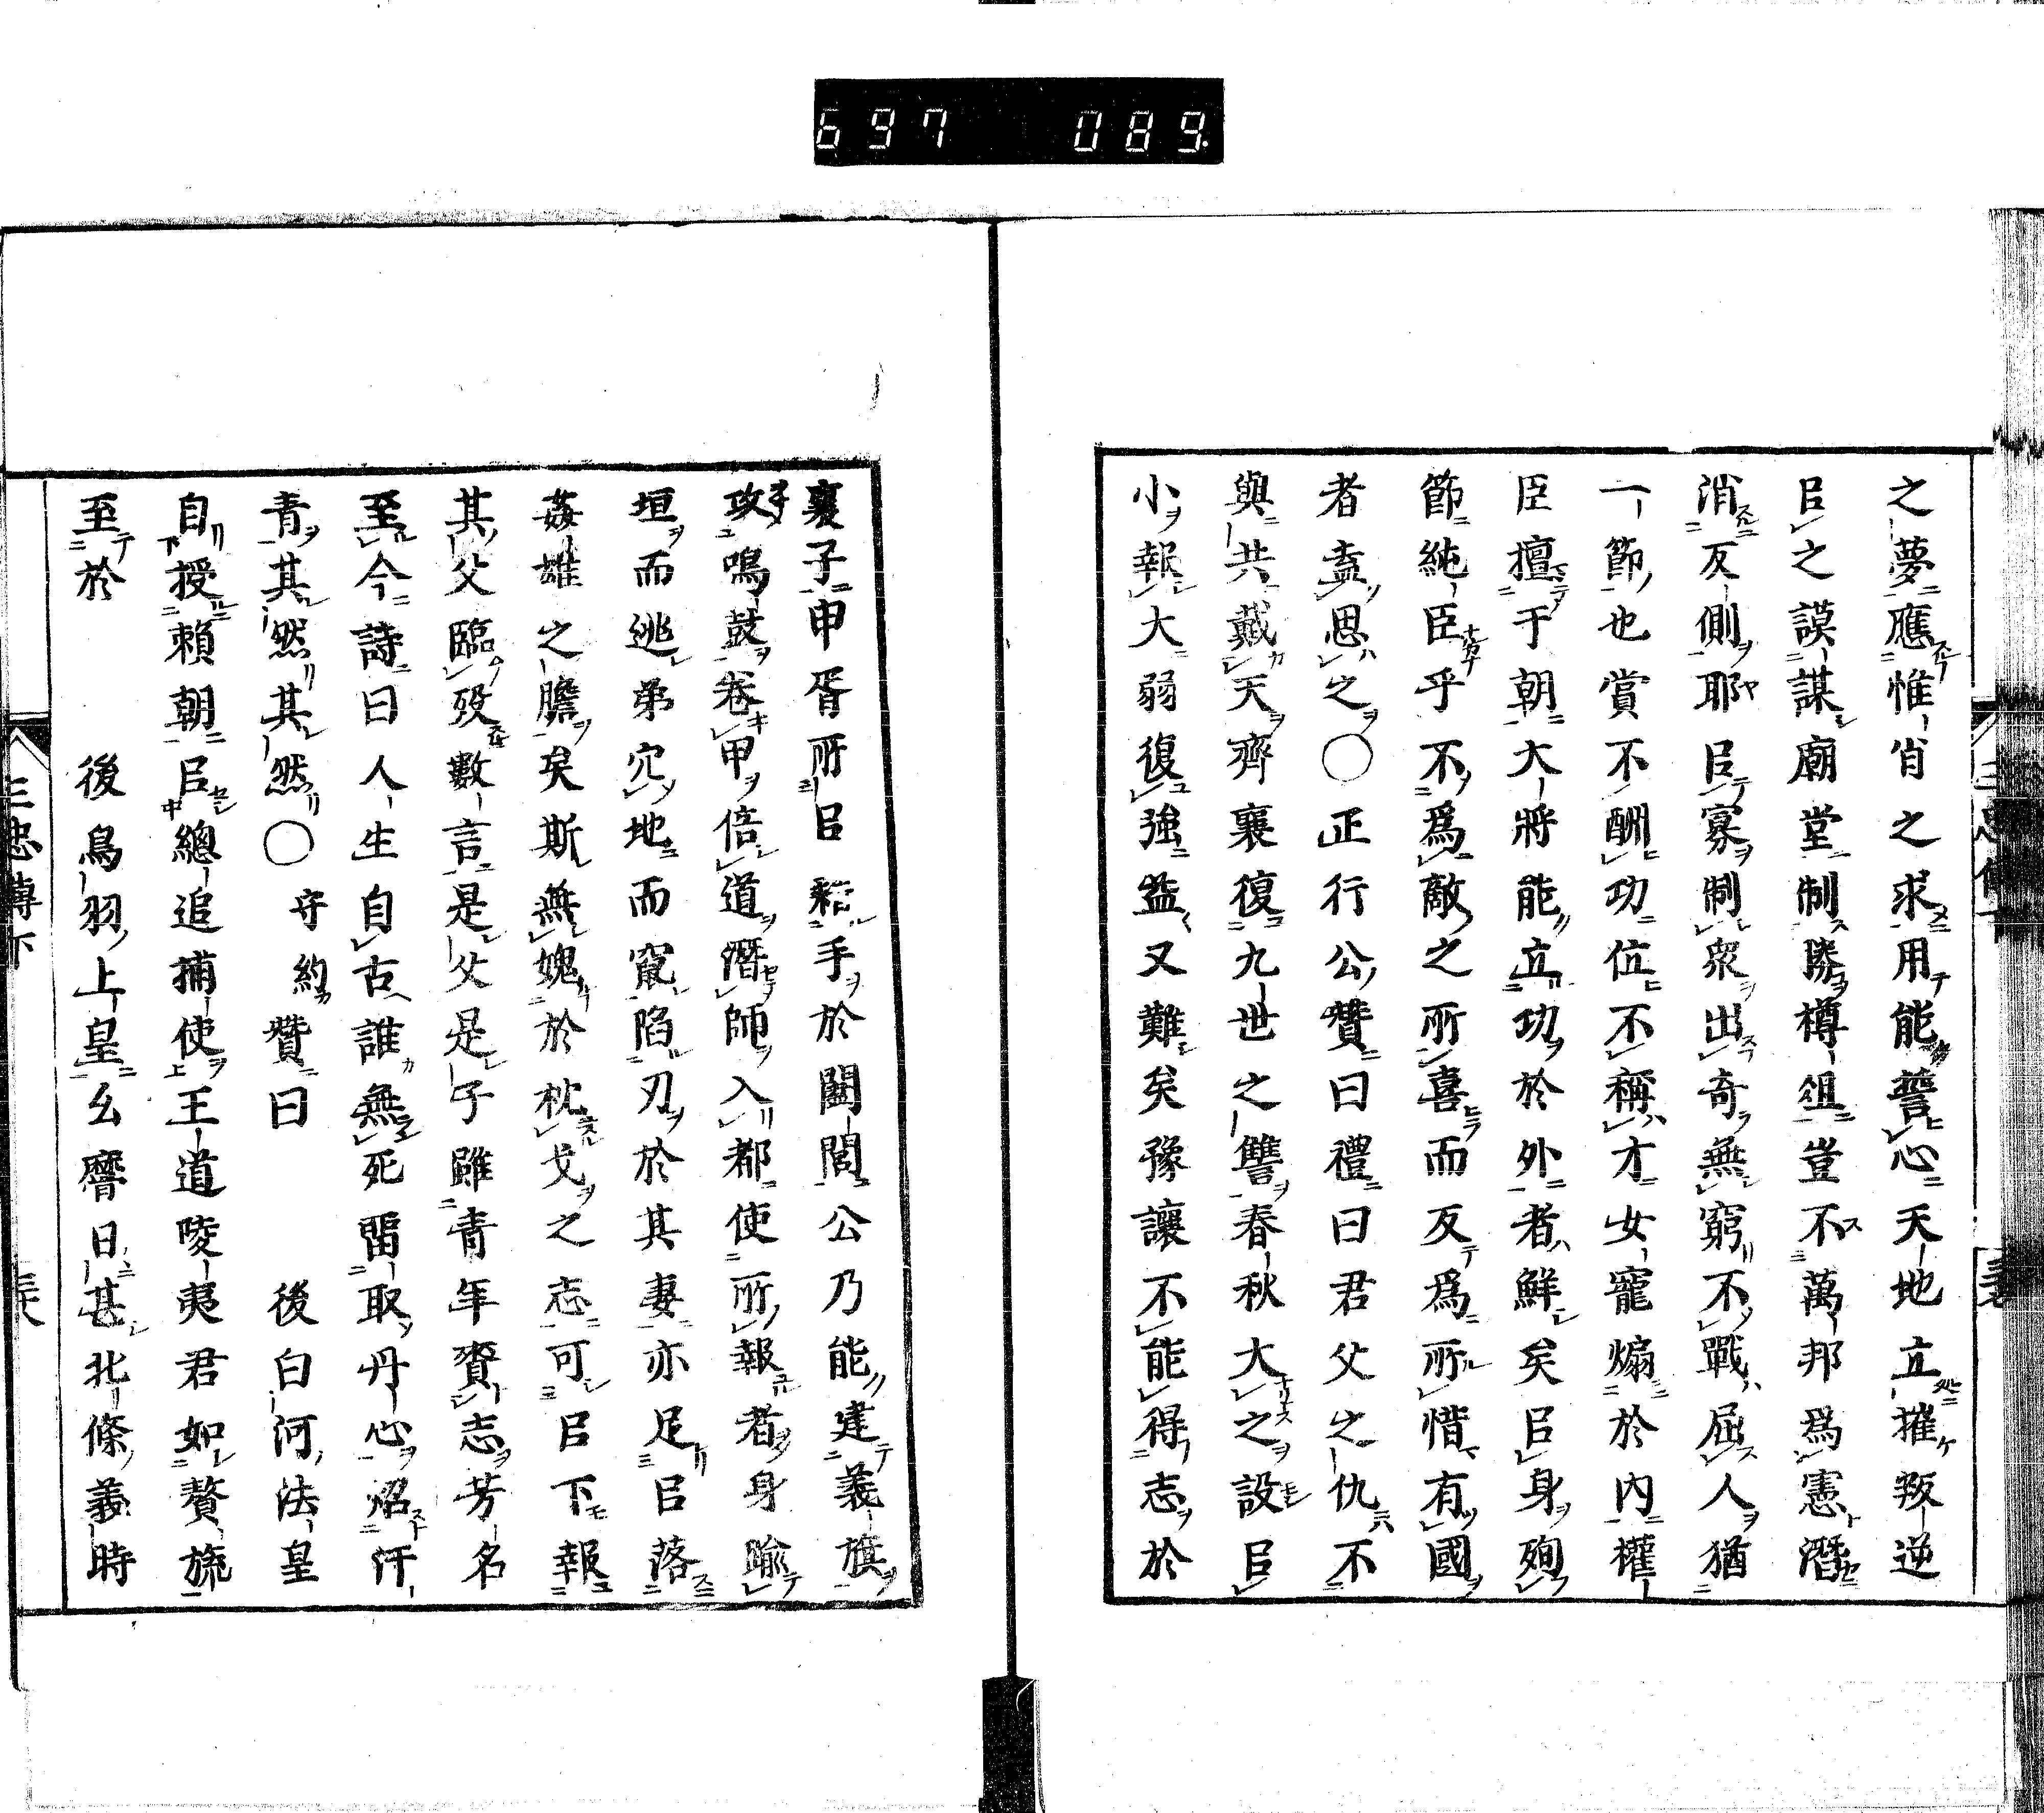 697 089
之夢應惟肖之求用能誓心天地立摧叛逆
㠯之謨謀廟堂制勝樽俎豈不萬邦爲憲潛
消反側耶㠯寡制衆出奇無窮不戰屈人猶
一節也賞不酬功位不稱才女寵煽於内權
臣擅于朝大將能立功於外者鮮矣㠯身殉
節純臣乎不爲敵之所喜而反爲所惜有國
者盍思之○正行公贊曰禮曰君父之仇不
與共戴天齊襄復九世之讐春秋大之設㠯
小報大弱復強益又難矣豫讓不能得志於
襄子申胥所㠯 手於闔閭公乃能建義旗
攻鳴鼓卷甲倍道潛師入都使所報者身踰
垣而逃弟穴地而竄陷刃於其妻亦足㠯落
姦雄之膽矣斯無媿於枕戈之志可㠯下報
其父臨歿數言是父是子雖青年賫志芳名
至今詩曰人生自古誰無死畱取丹心炤汗
青其然其然○守約贊曰 後白河法皇
自授賴朝㠯總追捕使王道陵夷君如贅旒
至於 後鳥羽上皇幺麿日甚北條義時
三忠傳下